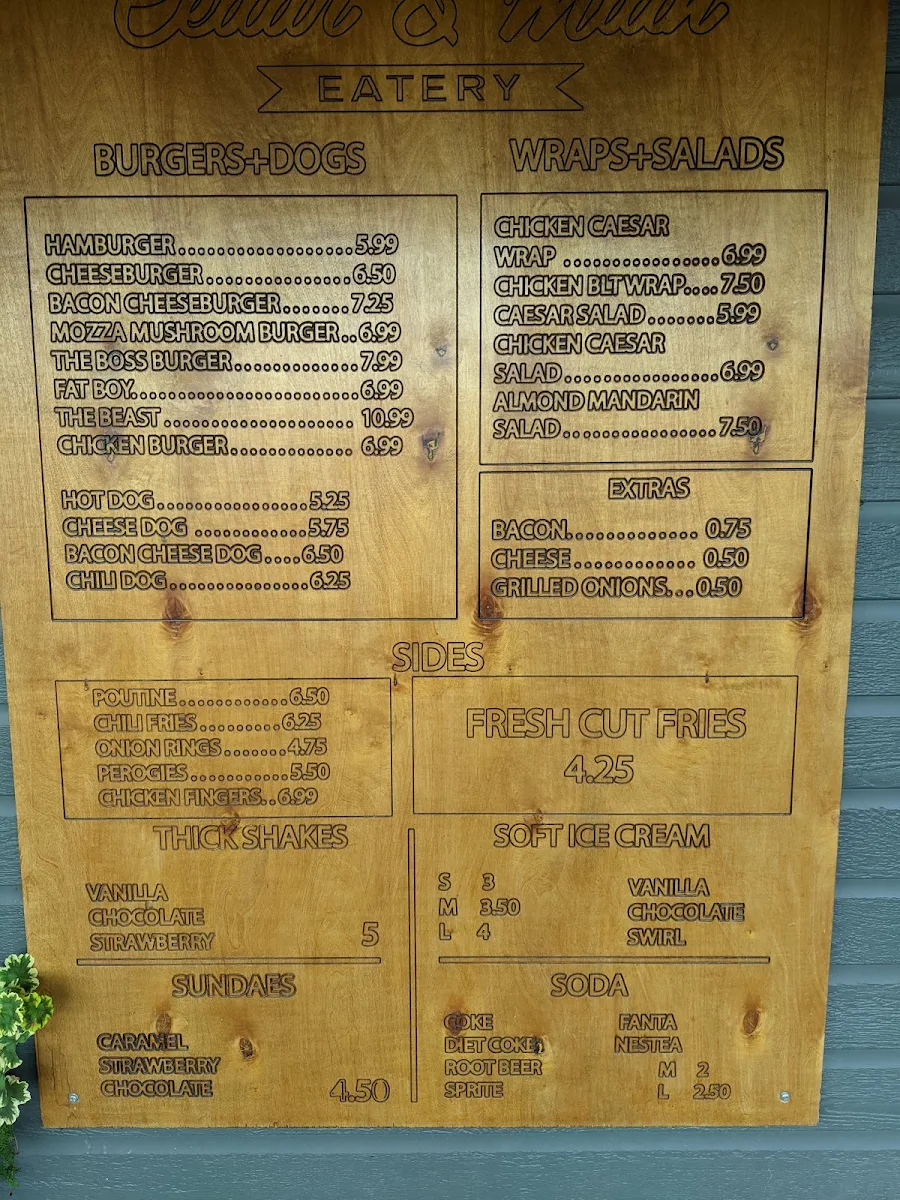 &
EATERY
BURGERS+DOGS
HAMBURGER..................5.99
CHEESEBURGER...............6.50
BACON CHEESEBURGER.......7.25
MOZZA MUSHROOM BURGER..6.99
THE BOSS BURGER.............7.99
FAT BOY........................6.99
THE BEAST .................... 10.99
CHICKEN BURGER............. 6.99
HOT DOG.................5.25
CHEESE DOG .............5.75
BACON CHEESE DOG ....6.50
CHILI DOG................6.25
WRAPS+SALADS
CHICKEN CAESAR
WRAP .................6.99
CHICKEN BLT WRAP....7.50
CAESAR SALAD.......5.99
CHICKEN CAESAR
SALAD.................6.99
ALMOND MANDARIN
SALAD.................7.50
EXTRAS
BACON.............. 0.75
CHEESE............. 0.50
GRILLED ONIONS...0.50
SIDES
POUTINE.............6.50
CHILI FRIES..........6.25
ONION RINGS........4.75
PEROGIES............5.50
CHICKEN FINGERS..6.99
FRESH CUT FRIES
4.25
THICK SHAKES
VANILLA
CHOCOLATE
STRAWBERRY 5
SOFT ICE CREAM
S 3
M 3.50
L 4
VANILLA
CHOCOLATE
SWIRL
SUNDAES
CARAMEL
STRAWBERRY
CHOCOLATE 4.50
SODA
COKE
DIET COKE
ROOT BEER
SPRITE
FANTA
NESTEA
M 2
L 2.50